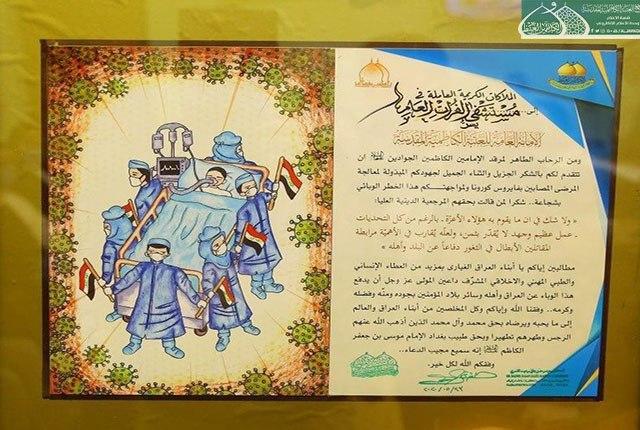 الملاكات الكريمة العاملة في
إلى.. مستشفى الفرات العام
الأمانة العامة للعتبة الكاظمية المقدسة
ومن الرحاب الطاهر لمرقد الإمامين الكاظمين الجوادين أن
نتقدم لكم بالشكر الجزيل والثناء الجميل لجهودكم المبذولة لمعالجة
المرضى المصابين بفايروس كورونا ولمواجهتكم هذا الخطر الوبائي
بشجاعة.. شكرا لمن قالت بحقهم المرجعية الدينية العليا:
«ولا شك في ان ما يقوم به هؤلاء الأعزة.. بالرغم من كل التحديات
- عمل عظيم وجهد لا يقدّر بثمن، ولعلّه يُقارب في الأهمية مرابطة
المقاتلين الأبطال في الثغور دفاعاً عن البلد وأهله»
مطالبين إياكم يا أبناء العراق الغيارى بمزيد من العطاء الإنساني
والطبي المهني والاخلاقي المشرّف داعين المولى عز وجل أن يدفع
هذا الوباء عن العراق وأهله وسائر بلاد المؤمنين بجوده ومنّه وفضله
وكرمه.. وفقنا الله وإياكم وكل المخلصين من أبناء العراق والعالم
إلى ما يحبه ويرضاه بحق محمد وآل محمد الذين أذهب الله عنهم
الرجس وطهرهم تطهيرا وبحق طبيب بغداد الإمام موسى بن جعفر
الكاظم إنه سميع مجيب الدعاء..
وفقكم الله لكل خير.